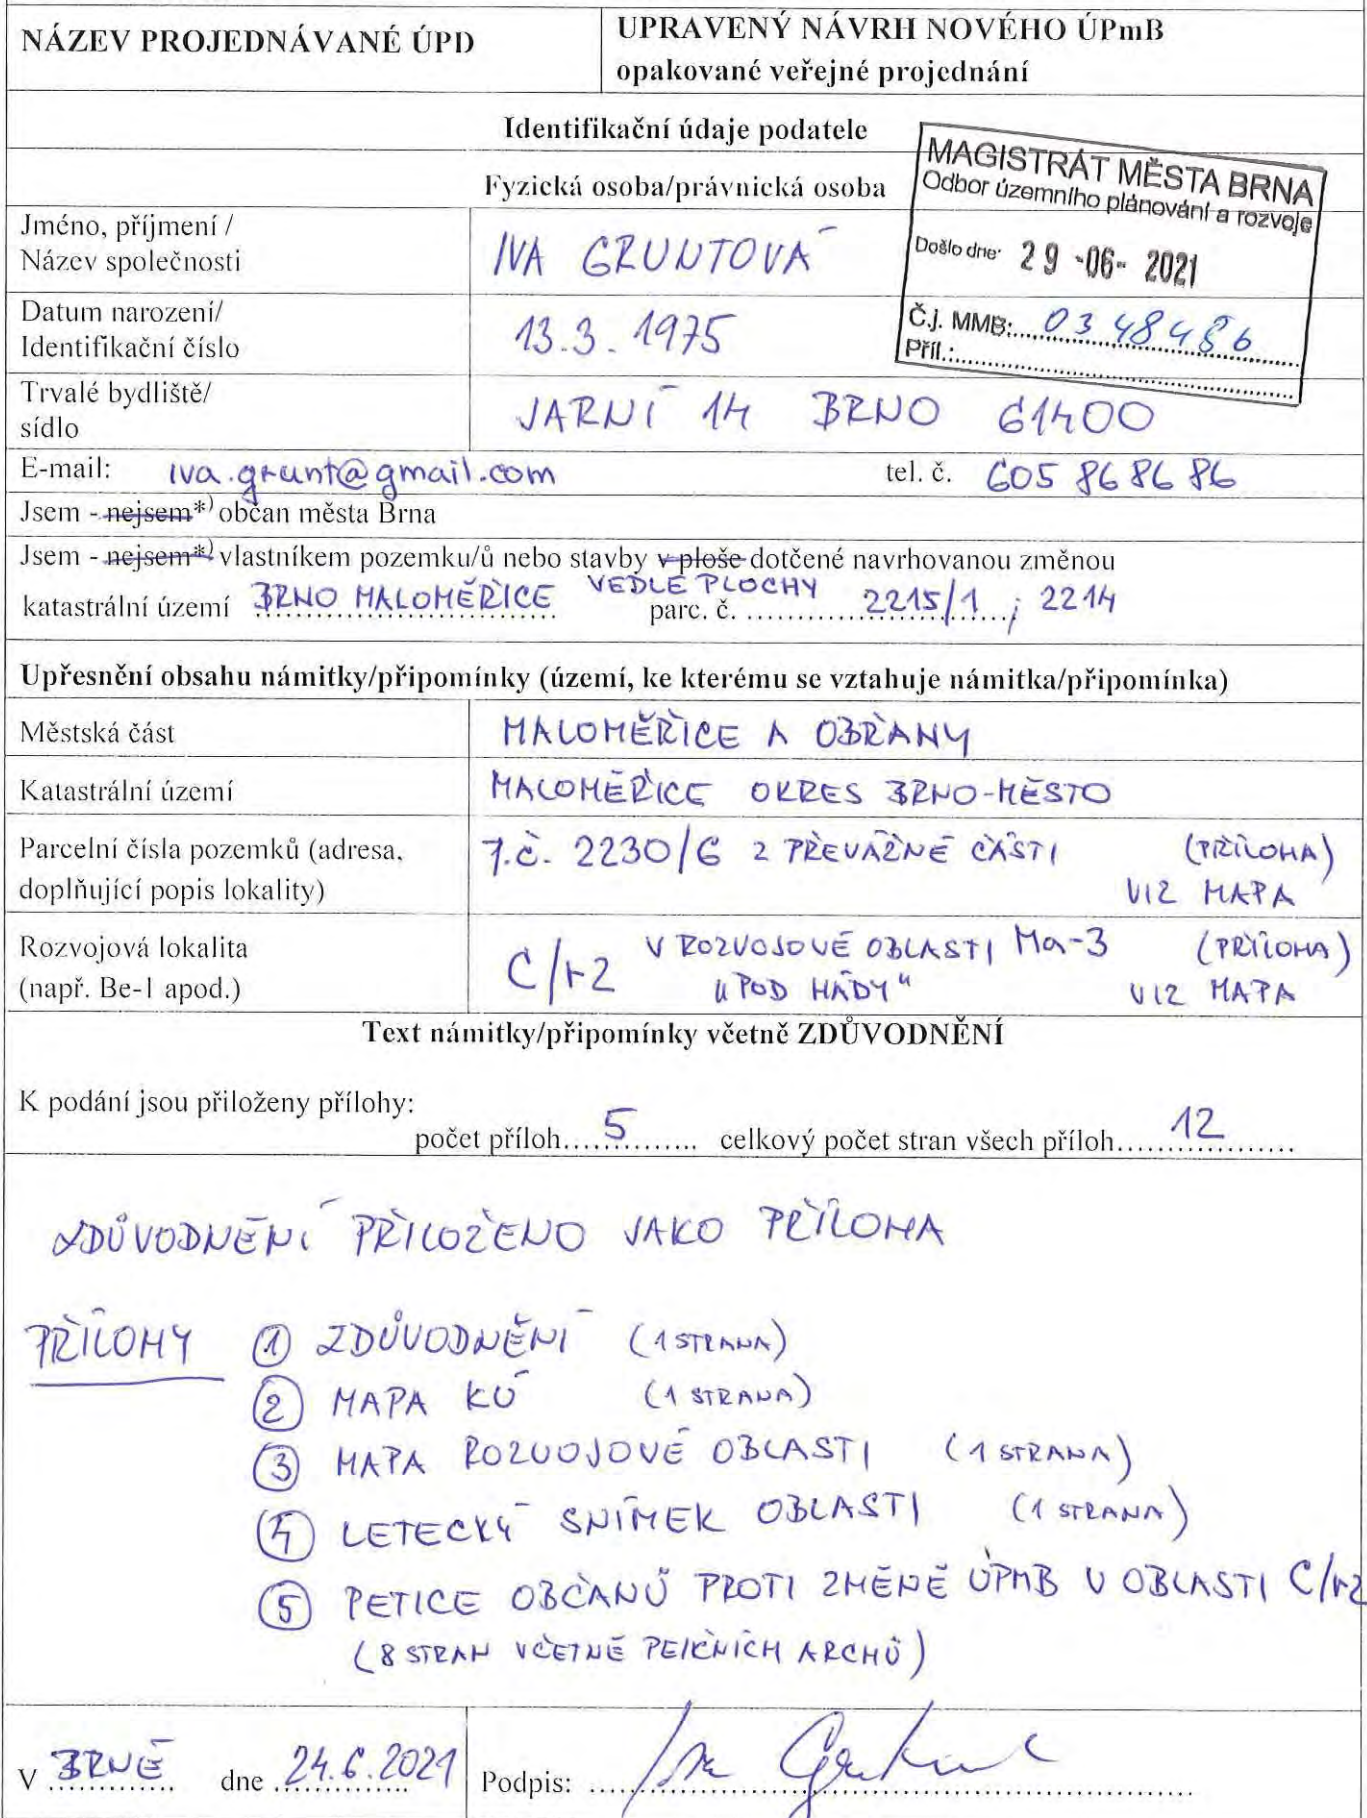 NÁZEV PROJEDNÁVANÉ ÚPD
UPRAVENÝ NÁVRH NOVÉHO ÚPmB
opakované veřejné projednání
Identifikační údaje podatele
Fyzická osoba/právnická osoba
MAGISTRÁT MĚSTA BRNA
Odbor územního plánování a rozvoje
Došlo dne: 29 -06- 2021
Č.j. MMB: 0348486
Příl.:
Jméno, příjmení /
Název společnosti
IVA GRUNTOVÁ
Datum narození/
Identifikační číslo
13.3.1975
Trvalé bydliště/
sídlo
JARNÍ 14 BRNO 61400
E-mail: iva.grunt@gmail.com tel. č. 605 86 86 86
Jsem - nejsem*) občan města Brna
Jsem - nejsem*) vlastníkem pozemku/ů nebo stavby v ploše dotčené navrhovanou změnou
VEDLE PLOCHY
katastrální území BRNO MALOMĚŘICE parc. č. 2215/1 ; 2214
Upřesnění obsahu námitky/připomínky (území, ke kterému se vztahuje námitka/připomínka)
Městská část
MALOMĚŘICE A OBŘANY
Katastrální území
MALOMĚŘICE OKRES BRNO-MĚSTO
Parcelní čísla pozemků (adresa,
doplňující popis lokality)
P.Č. 2230/6 Z PŘEVÁŽNÉ ČÁSTI (PŘÍLOHA)
VIZ MAPA
Rozvojová lokalita
(např. Be-1 apod.)
C/r2 V ROZVOJOVÉ OBLASTI Ma-3 (PŘÍLOHA)
"POD HÁDY" VIZ MAPA
Text námitky/připomínky včetně ZDŮVODNĚNÍ
K podání jsou přiloženy přílohy:
počet příloh.....5............. celkový počet stran všech příloh.......12...........
ZDŮVODNĚNÍ PŘILOŽENO JAKO PŘÍLOHA
PŘÍLOHY ① ZDŮVODNĚNÍ (1 STRANA)
② MAPA KÚ (1 STRANA)
③ MAPA ROZVOJOVÉ OBLASTI (1 STRANA)
④ LETECKÝ SNÍMEK OBLASTI (1 STRANA)
⑤ PETICE OBČANŮ PROTI ZMĚNĚ ÚPMB V OBLASTI C/r2
(8 STRAN VČETNĚ PETIČNÍCH ARCHŮ)
V BRNĚ dne 24.6.2021 Podpis: